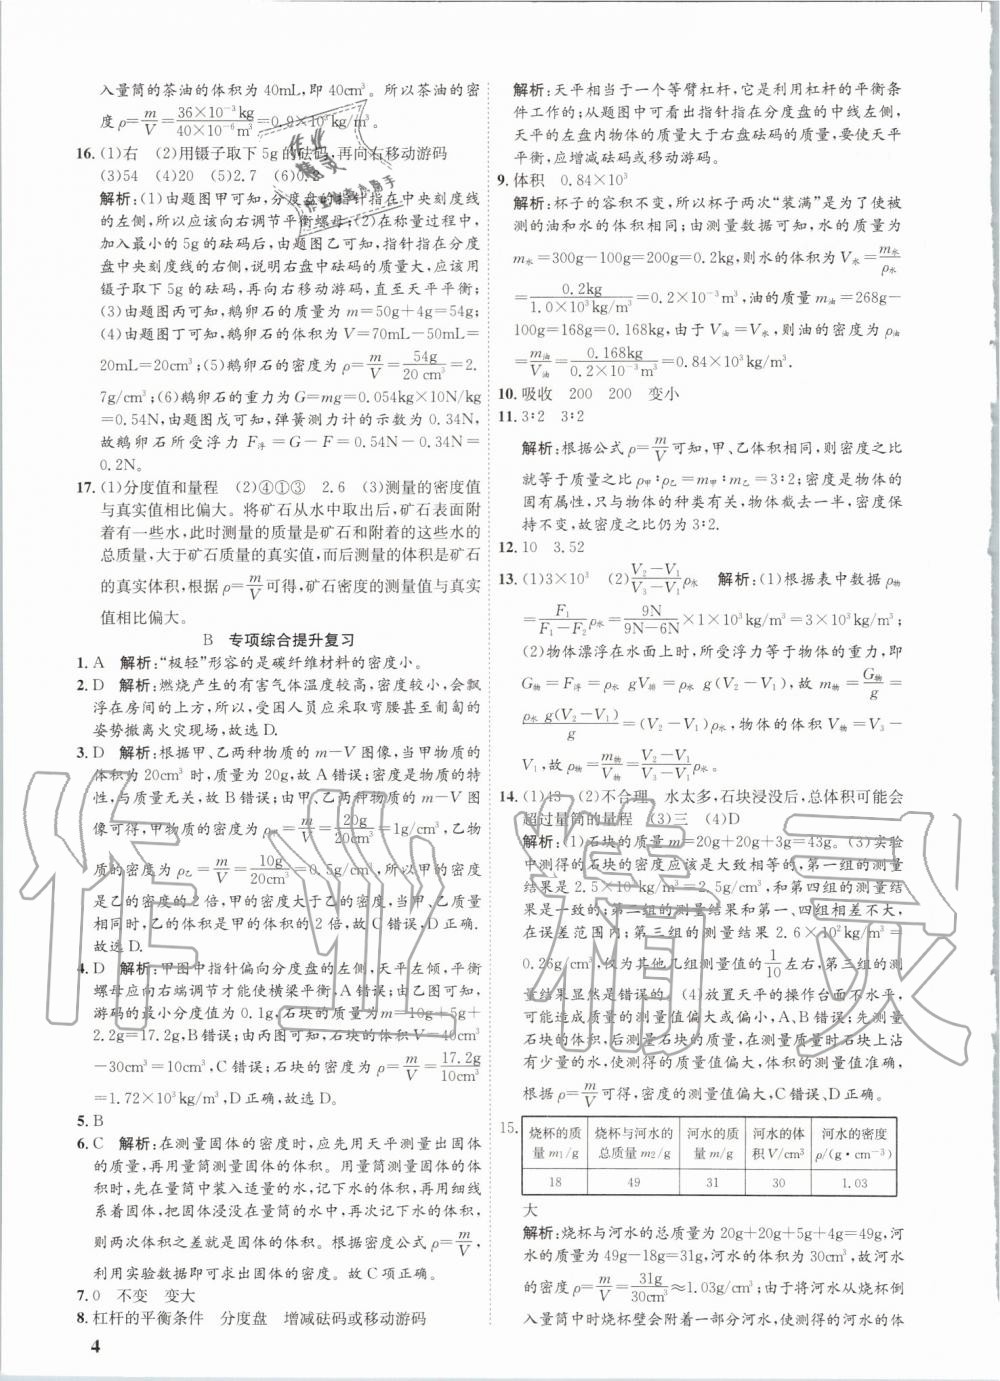 入量筒的茶油的体积为 40mL,即 40cm³。所以茶油的密
度 ρ=m/V=36×10⁻³kg/40×10⁻⁶m³=0.9×10³kg/m³。
16. (1)右　(2)用镊子取下 5g 的砝码,再向右移动游码
(3)54　(4)20　(5)2.7　(6)0.2
解析:(1)由题图甲可知,分度盘的指针指在中央刻度线
的左侧,所以应该向右调节平衡螺母;(2)在称量过程中,
加入最小的 5g 的砝码后,由题图乙可知,指针指在分度
盘中央刻度线的右侧,说明右盘砝码的质量大,应该用
镊子取下 5g 的砝码,再向右移动游码,直至天平平衡;
(3)由题图丙可知,鹅卵石的质量为 m=50g+4g=54g;
(4)由题图丁可知,鹅卵石的体积为 V=70mL-50mL=
20mL=20cm³;(5)鹅卵石的密度为 ρ=m/V=54g/20 cm³=2.
7g/cm³;(6)鹅卵石的重力为 G=mg=0.054kg×10N/kg
=0.54N,由题图戊可知,弹簧测力计的示数为 0.34N,
故鹅卵石所受浮力 F浮=G-F=0.54N-0.34N=
0.2N。
17. (1)分度值和量程　(2)④①③　2.6　(3)测量的密度值
与真实值相比偏大。将矿石从水中取出后,矿石表面附
着有一些水,此时测量的质量是矿石和附着的这些水的
总质量,大于矿石质量的真实值,而后测量的体积是矿石
的真实体积,根据 ρ=m/V可得,矿石密度的测量值与真实
值相比偏大。
B　专项综合提升复习
1. A　解析:“极轻”形容的是碳纤维材料的密度小。
2. D　解析:燃烧产生的有害气体温度较高,密度较小,会飘
浮在房间的上方,所以,受困人员应采取弯腰甚至匍匐的
姿势撤离火灾现场,故选 D.
3. D　解析:根据甲、乙两种物质的 m-V 图像,当甲物质的
体积为 20cm³ 时,质量为 20g,故 A 错误;密度是物质的特
性,与质量无关,故 B 错误;由甲、乙两种物质的 m-V 图
像可得,甲物质的密度 ρ甲=m/V=20g/20cm³=1g/cm³,乙物
质的密度为 ρ乙=m/V=10g/20cm³=0.5g/cm³,所以甲的密度
是乙的密度的 2 倍,甲的密度大于乙的密度,甲、乙质量
相同时,乙的体积是甲的体积的 2 倍,故 C 错误,D 正确.
故选 D.
4. D　解析:甲图中指针偏向分度盘的左侧,天平左倾,平衡
螺母应向右端调节才能使横梁平衡,A 错误;由乙图可知,
游码的最小分度值为 0.1g,石块的质量为 m=10g+5g+
2.2g=17.2g,B 错误;由丙图可知,石块的体积 V=40cm³
-30cm³=10cm³,C 错误;石块的密度为 ρ=m/V=17.2g/10cm³
=1.72×10³kg/m³,D 正确,故选 D.
5. B
6. C　解析:在测量固体的密度时,应先用天平测量出固体
的质量,再用量筒测量固体的体积。用量筒测量固体的体
积时,先在量筒中装入适量的水,记下水的体积,再用细线
系着固体,把固体浸没在量筒的水中,再次记下水的体积,
则两次体积之差就是固体的体积。根据密度公式 ρ=m/V,
利用实验数据即可求出固体的密度。故 C 项正确。
7. 0　不变　变大
8. 杠杆的平衡条件　分度盘　增减砝码或移动游码
4
解析:天平相当于一个等臂杠杆,它是利用杠杆的平衡条
件工作的;从题图中可看出指针指在分度盘的中线左侧,
天平的左盘内物体的质量大于右盘砝码的质量,要使天平
平衡,应增减砝码或移动游码。
9. 体积　0.84×10³
解析:杯子的容积不变,所以杯子两次“装满”是为了使被
测的油和水的体积相同;由测量数据可知,水的质量为
m水=300g-100g=200g=0.2kg,则水的体积为 V水=m水/ρ水
=0.2kg/1.0×10³kg/m³=0.2×10⁻³m³,油的质量 m油=268g-
100g=168g=0.168kg,由于 V油=V水,则油的密度为 ρ油
=m油/V油=0.168kg/0.2×10⁻³m³=0.84×10³kg/m³.
10. 吸收　200　200　变小
11. 3∶2　3∶2
解析:根据公式 ρ=m/V可知,甲、乙体积相同,则密度之比
就等于质量之比 ρ甲∶ρ乙=m甲∶m乙=3∶2;密度是物体的
固有属性,只与物体的种类有关,物体截去一半,密度
保持不变,故密度之比仍为 3∶2.
12. 10　3.52
13. (1)3×10³　(2)V₂-V₁/V₃-V₁ρ水　解析:(1)根据表中数据 ρ物
=F₁/F₁-F₂ρ水=9N/9N-6N×1×10³kg/m³=3×10³kg/m³;
(2)物体漂浮在水面上时,所受浮力等于物体的重力,即
G物=F浮=ρ水 gV排=ρ水 g(V₂-V₁),故 m物=G物/g=
ρ水 g(V₂-V₁)/g=(V₂-V₁)ρ水,物体的体积 V物=V₃-
V₁,故 ρ物=m物/V物=V₂-V₁/V₃-V₁ρ水。
14. (1)43　(2)不合理　水太多,石块浸没后,总体积可能会
超过量筒的量程　(3)三　(4)D
解析:(1)石块的质量 m=20g+20g+3g=43g。(3)实验
中测得的石块的密度应该是大致相等的,第一组的测量
结果是 2.5×10³kg/m³=2.5g/cm³,和第四组的测量
结果是一致的;第二组的测量结果和第一、四组相差不大,
在误差范围内;第三组的测量结果 2.6×10²kg/m³=
0.26g/cm³,仅为其他几组测量值的1/10左右,第三组的测
量结果显然是错误的　(4)放置天平的操作台面不水平,可
可能造成质量的测量值偏大或偏小,A、B 错误;先测量
石块的体积,后测量石块的质量,在测量质量时石块上沾
有少量的水,使测得的质量值偏大,体积的测量值准确,
根据 ρ=m/V可得,密度的测量值偏大,C 错误、D 正确。
15.
烧杯的质量 m₁/g　烧杯与河水的总质量 m₂/g　河水的质量 m/g　河水的体积 V/cm³　河水的密度 ρ/(g·cm⁻³)
18　49　31　30　1.03
大
解析:烧杯与河水的总质量为 20g+20g+5g+4g=49g,河
水的质量为 49g-18g=31g,河水的体积为 30cm³,故河水
的密度 ρ=m/V=31g/30cm³≈1.03g/cm³;由于将河水从烧杯倒
入量筒中时烧杯壁会附着一部分河水,使测得的河水的体
作业精灵